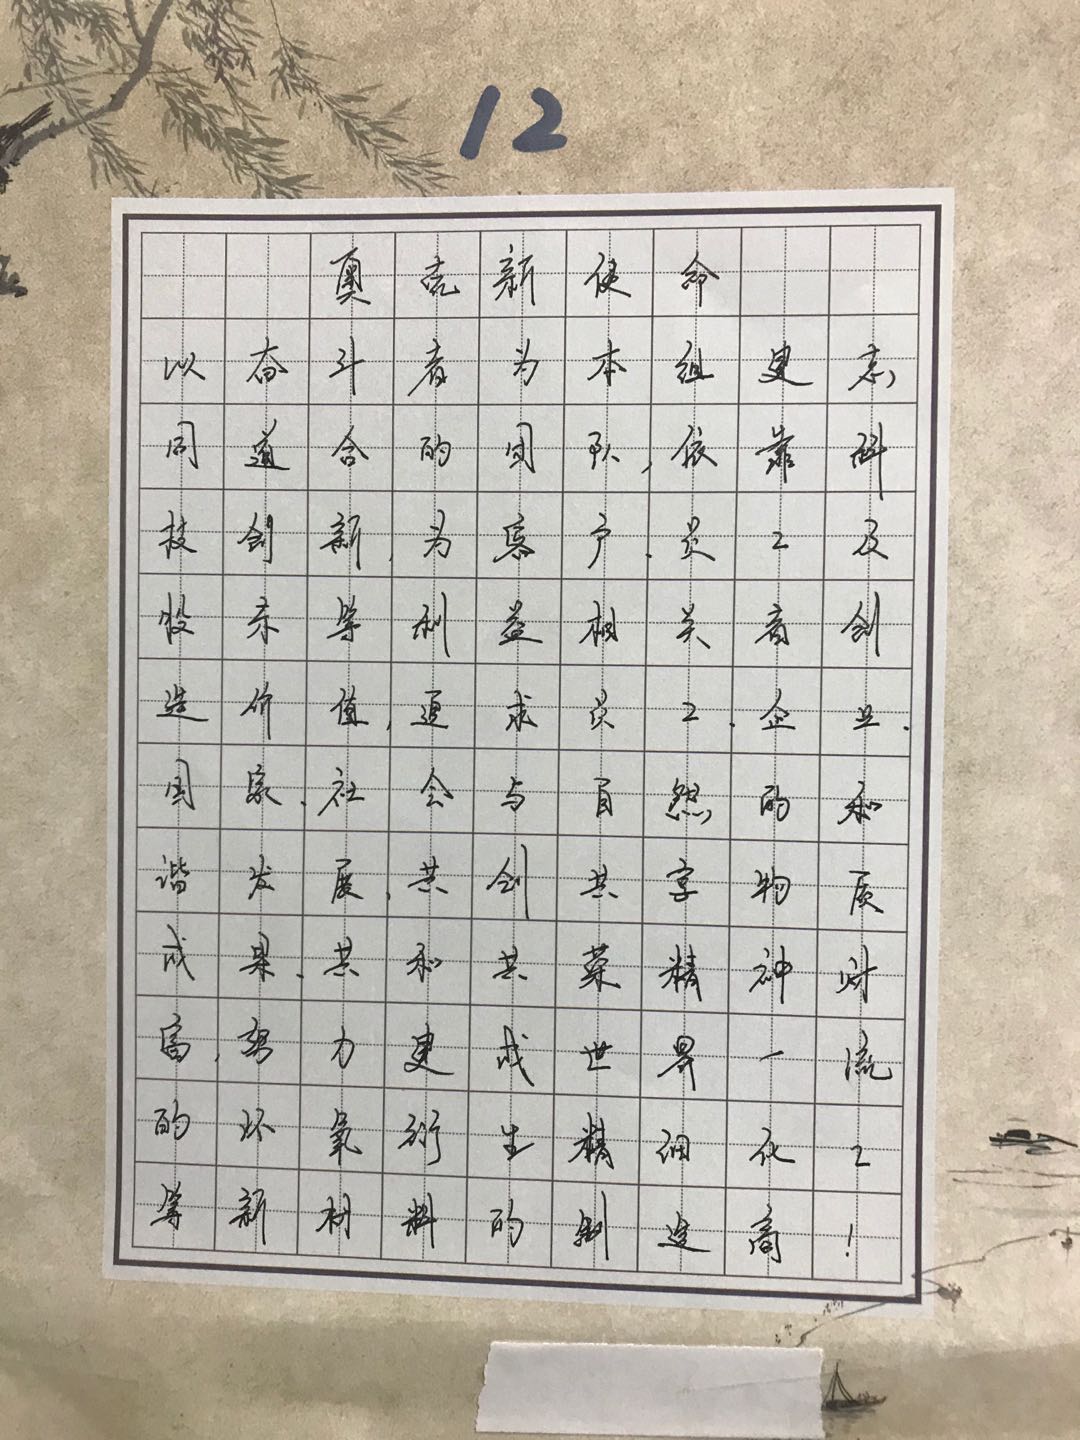 12
奥克新使命
以奋斗者为本组建志
同道合的团队,依靠科
技创新,为客户、员工及
股东等利益相关者创
造价值,追求员工、企业、
国家、社会与自然的和
谐发展,共创共享物质
成果、共和共荣精神财
富,努力建成世界一流
的环氧衍生精细化工
等新材料的制造商!